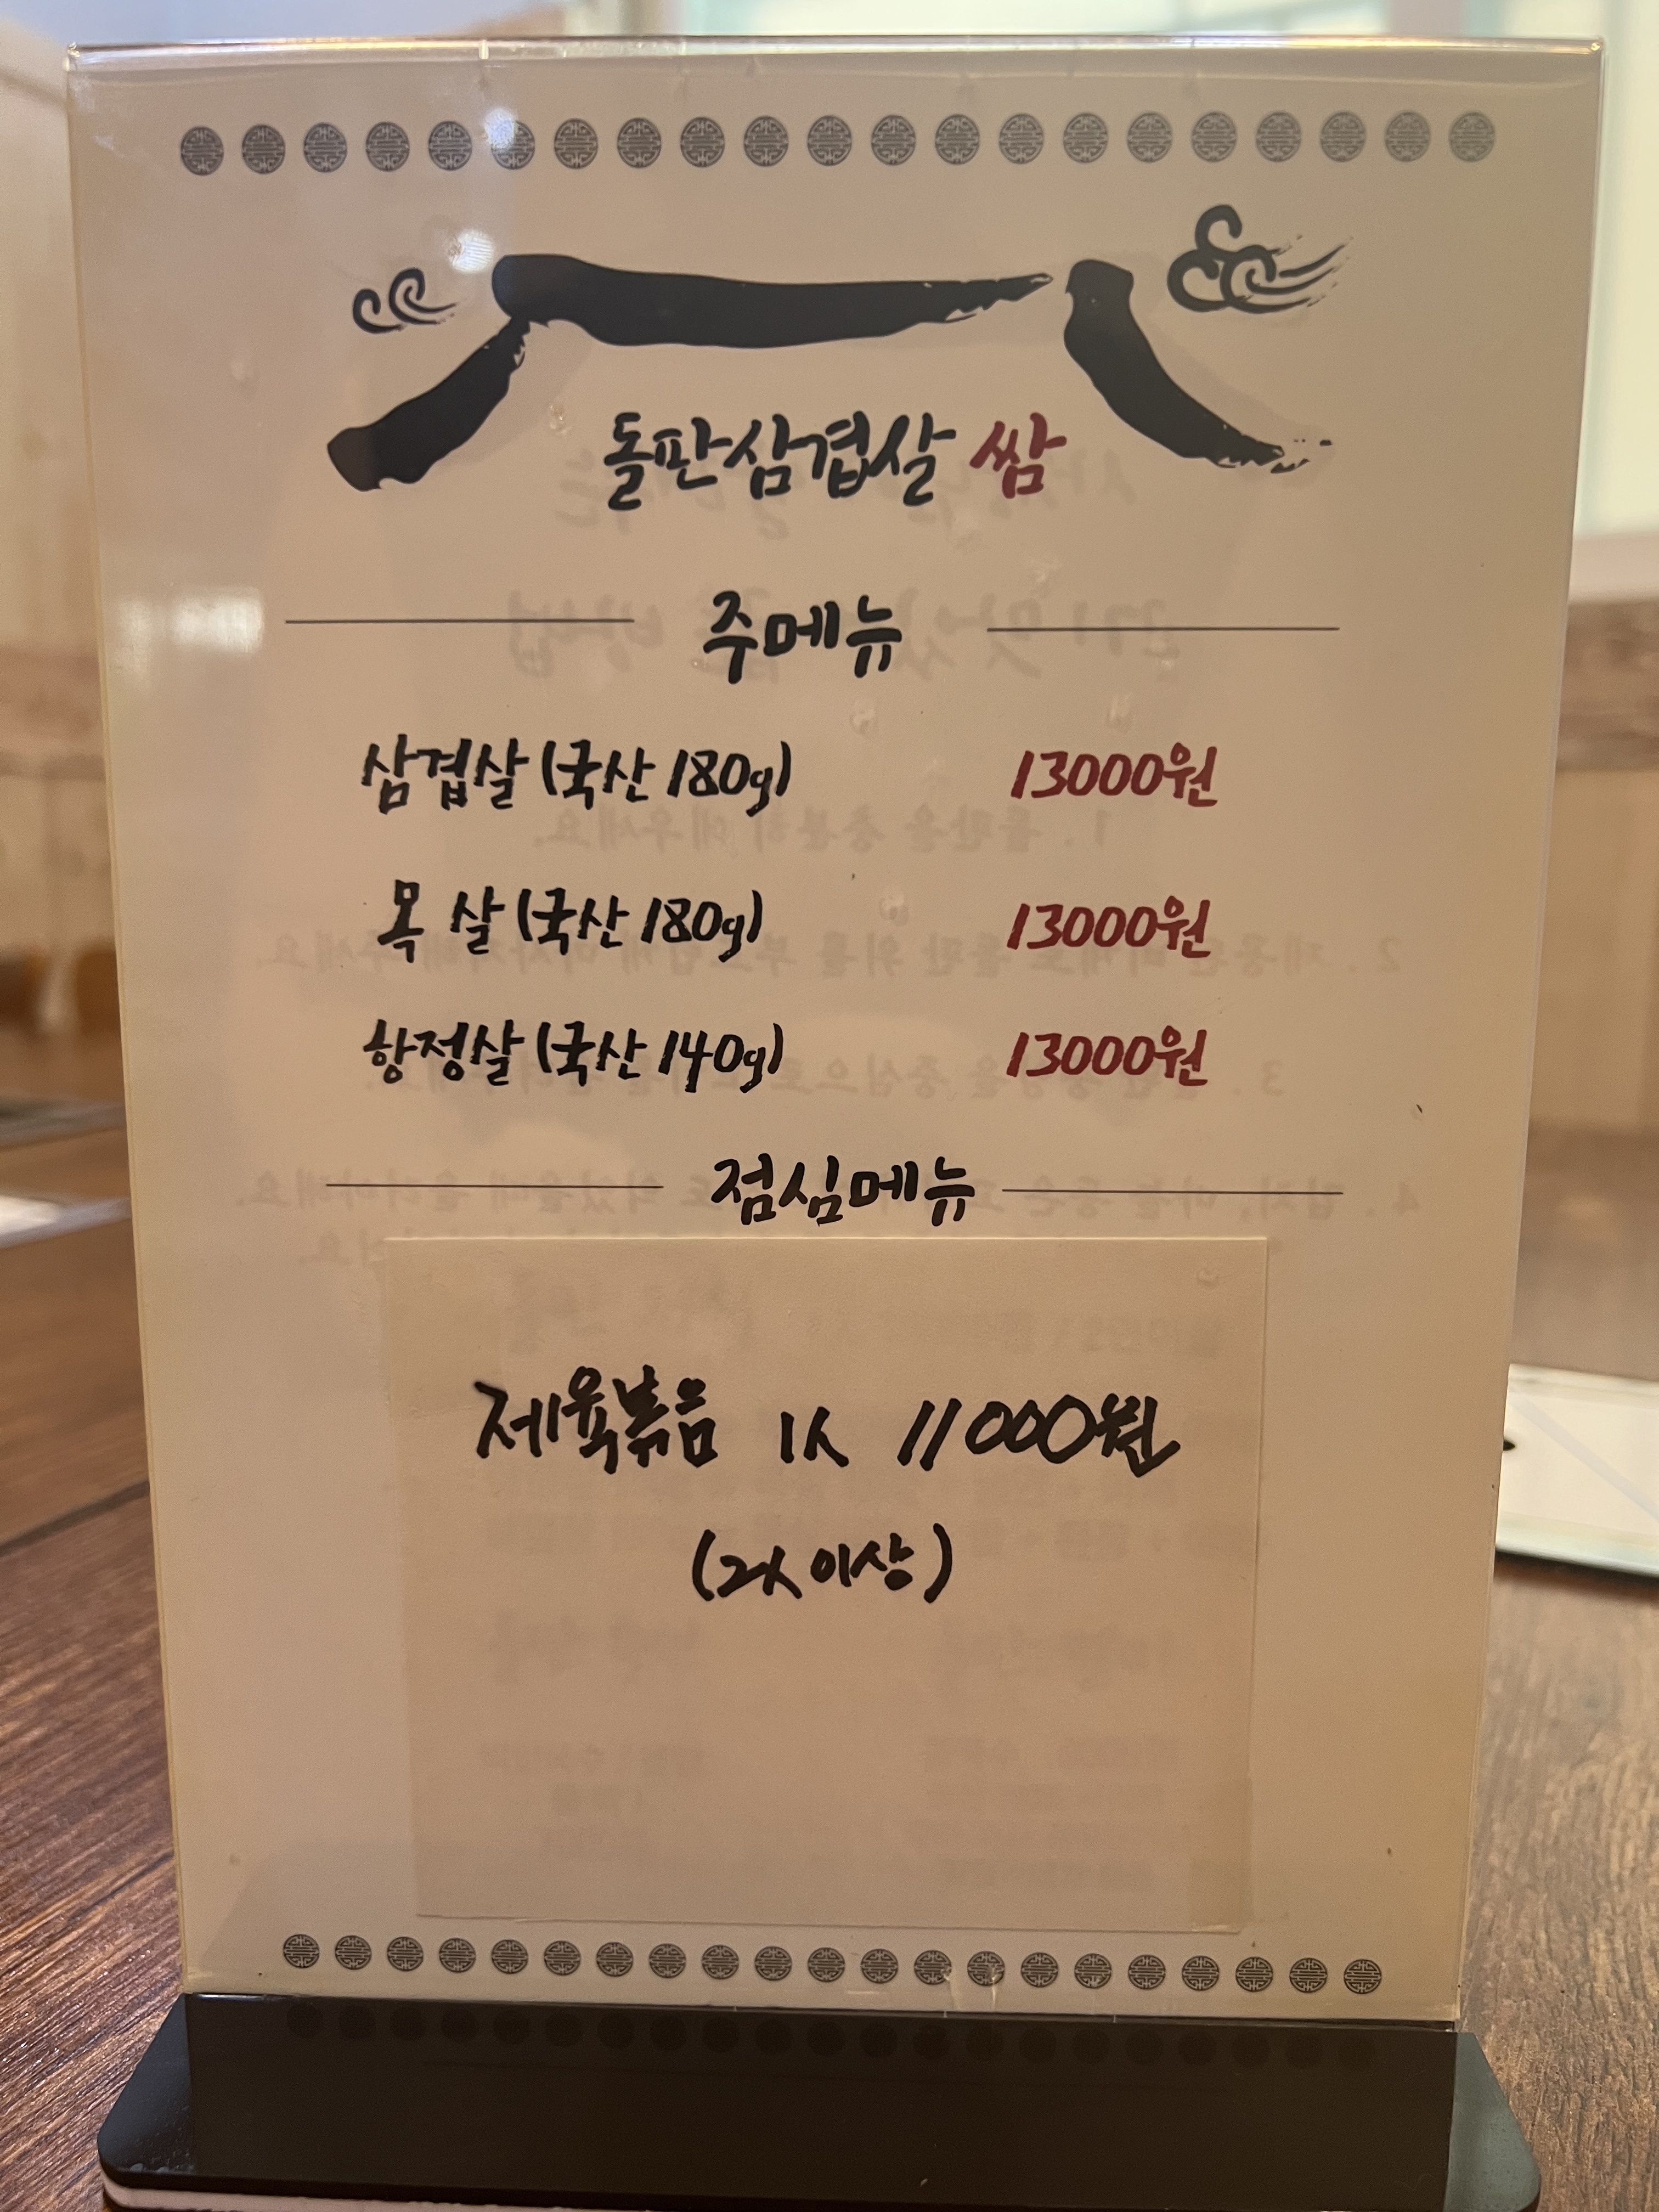 돌판삼겹살 쌈
주메뉴
삼겹살 (국산 180g) 13000원
목 살 (국산 180g) 13000원
항정살 (국산 140g) 13000원
점심메뉴
제육볶음 1人 11000원
(2人 이상)